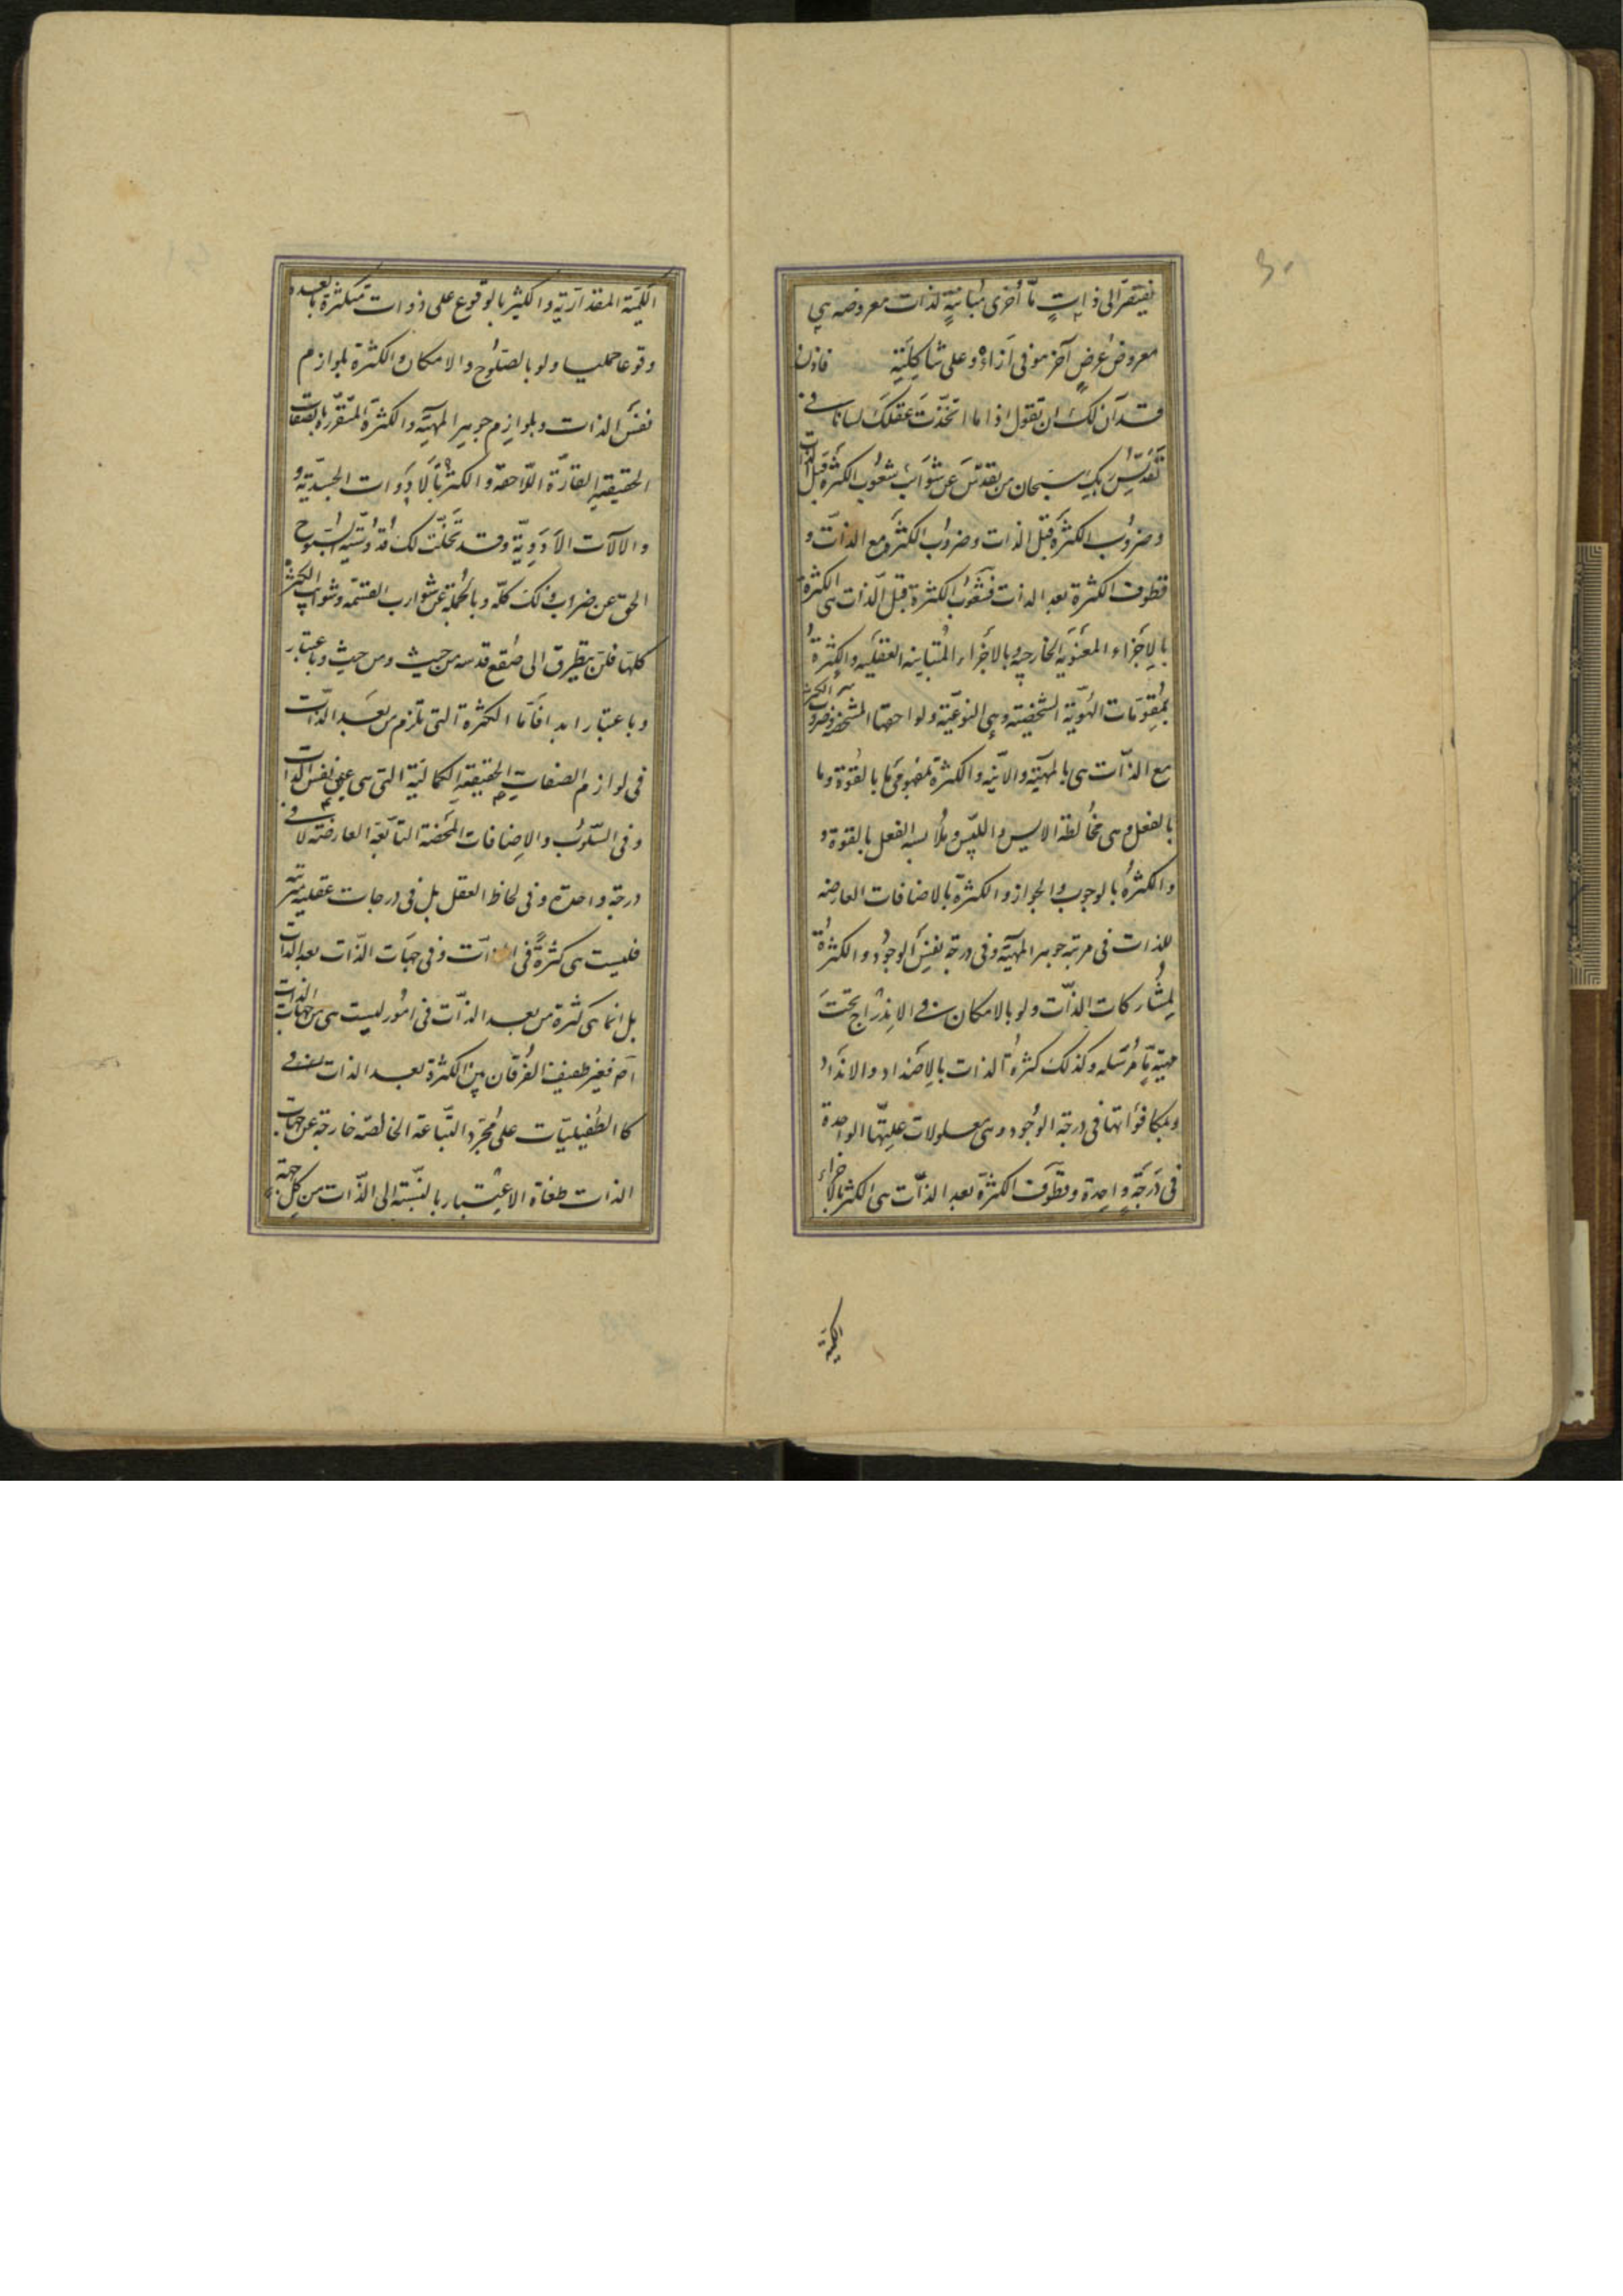 يفتقر الى ذاتٍ مّا أخرى مُباينةٍ لذات معروضه هي
معروضُ عرضٍ آخر هو فى اَزاءه وعلى شاكلته فاذن
قد آن لك ان تقول اذا ما اتخذت عقلك لسانا فى
تقديس ربّك سبحان من تقدّس عن شوائب شعوب الكثرة قبل الذات
وضروب الكثرة قبل الذات وضروب الكثرة مع الذات و
قطوف الكثرة بعد الذات فشعوب الكثرة قبل الذات هى الكثرة
بالاجزاء المعنويّه الخارجيه وبالاجزاء المتباينه العقليه والكثرة
بمقومات الهويّة الشخصيّه وهى النوعيّة ولواحقها المشخصه وضروب الكثرة
مع الذّات هى بالمهيّة والانّيه والكثرة بمفهومى ما بالقوة وما
بالفعل وهى مخالطة الايس والليس وملابسه الفعل بالقوة و
والكثرةُ بالوجوب والجواز والكثرة بالاضافات العارضه
للذات فى مرتبة جوهر المهيّة وفى درجة نفس الوجود والكثرةُ
بمشاركات الذّات ولو بالامكان فى الاندراج تحت
مهيّة مّا مُرسَله وكذلك كثرة الذات بالاضداد والانداد
وبمكافؤاتها فى درجة الوجُود وهى معلولات علّيتها الواحدة
فى درَجةٍ واحدة وقطوف الكثرة بعد الذّات هى الكثرة بالاجزاء
الكمية
الكميّة المقداريّة والكثير بالوقوع على ذوات متكثّرة بالعدد
وقوعا حمليا ولو بالصلوح والامكان والكثرة بلوازم
نفس الذات وبلوازم جوهر المهيّه والكثرة المتقرّرة بالصفات
الحقيقيه القارّة اللّاحقه والكثرة بالادوات الجسديّة و
والالات الادَويّة وقد تجلّت لك قدّوسّيه السّبّوح
الحق عن ضراب ذلك كلّه وبالجُملة عن شوارب القسمه وشوائب الكثرة
كلها فلن يتطرق الى صُقع قدسه من حيث ومن حيث وباعتبار
وباعتبار ابدا فاَمّا الكثرة التى تلزم من بعد الذّات
فى لوازم الصفات الحقيقيه الكماليّة التى هى عين نفس الذات
وفى السّلوب والاضافات المحضة التابعة العارضة لا فى
درجة واحدة وفى لحاظ العقل بل فى درجات عقليه مترتبه
فليست هى كثرةً فى الذات وفى جهات الذّات بعد الذات
بل انما هى كثرة من بعد الذّات فى امُور ليست هى من جهات الذات
اَم فغير طفيف الفُرقان بين الكثرة بعد الذات
كالطُفيليّات على مُجرّد التّباعة الخالصه خارجة عن جهات
الذات طفاة الاعتبار بالنّسبة الى الذّات من كلّ جهة